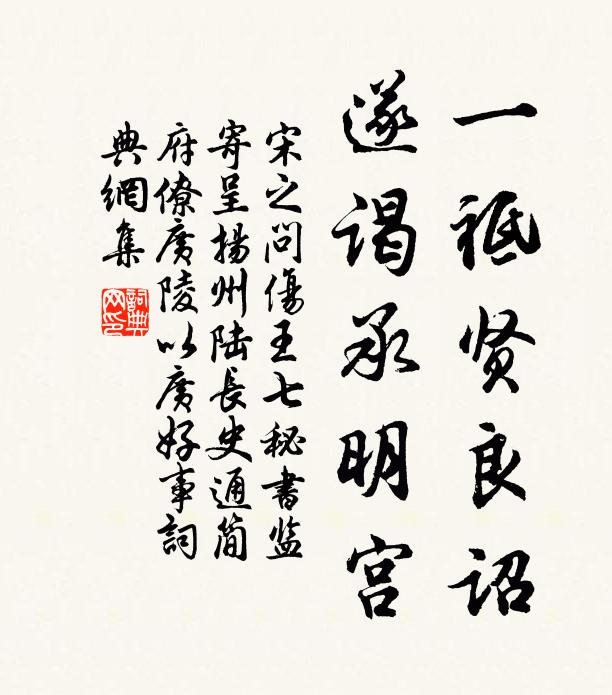 一祗贤良诏
遂谒承明宫
宋之问傷王七秘書监
寄呈揚州陆長史通简
府僚廣陵以廣好事詞
典網集
詞典
网印